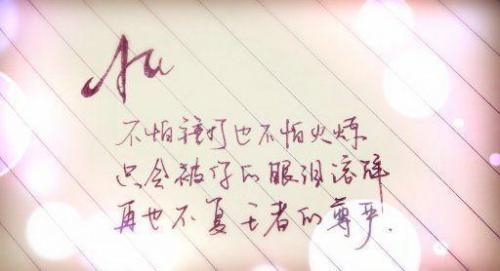 Au
不怕锤打也不怕火炼
只会被你的眼泪溶解
再也不复王者的尊严.